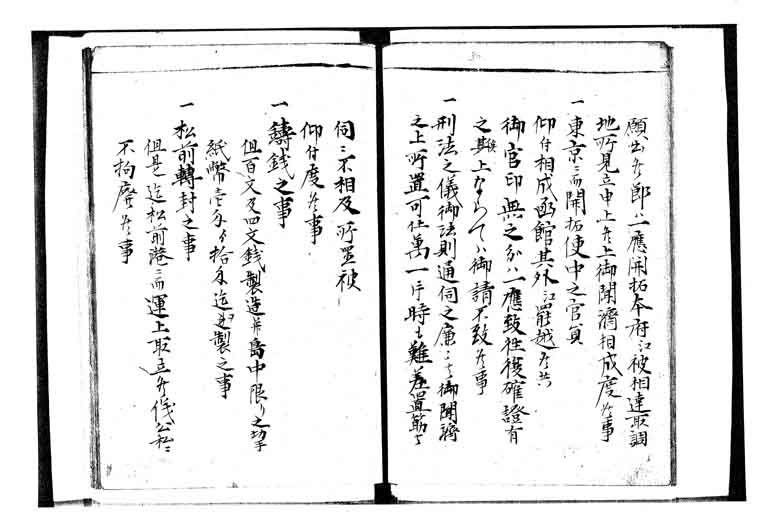 願出候節ハ一應開拓本府江被相達取調
地所見立申上候上御聞濟相成度候事
一東京ニ而開拓使中之官員
仰付相成函館其外江罷越候共
御官印無之分ハ一應致往復確證有
之候上ならてハ御請不致候事
一刑法之儀御法則通伺之廉ニも御聞濟
之上所置可仕萬一片時も難差置筋も
伺ニ不相及所置被
仰付度候事
一鑄錢之事
但百文及四文錢製造并島中限り之切手
紙幣壱分ゟ拾分迄製之事
一松前轉封之事
但是迄松前港ニ而運上取立候儀
不拘廢候事